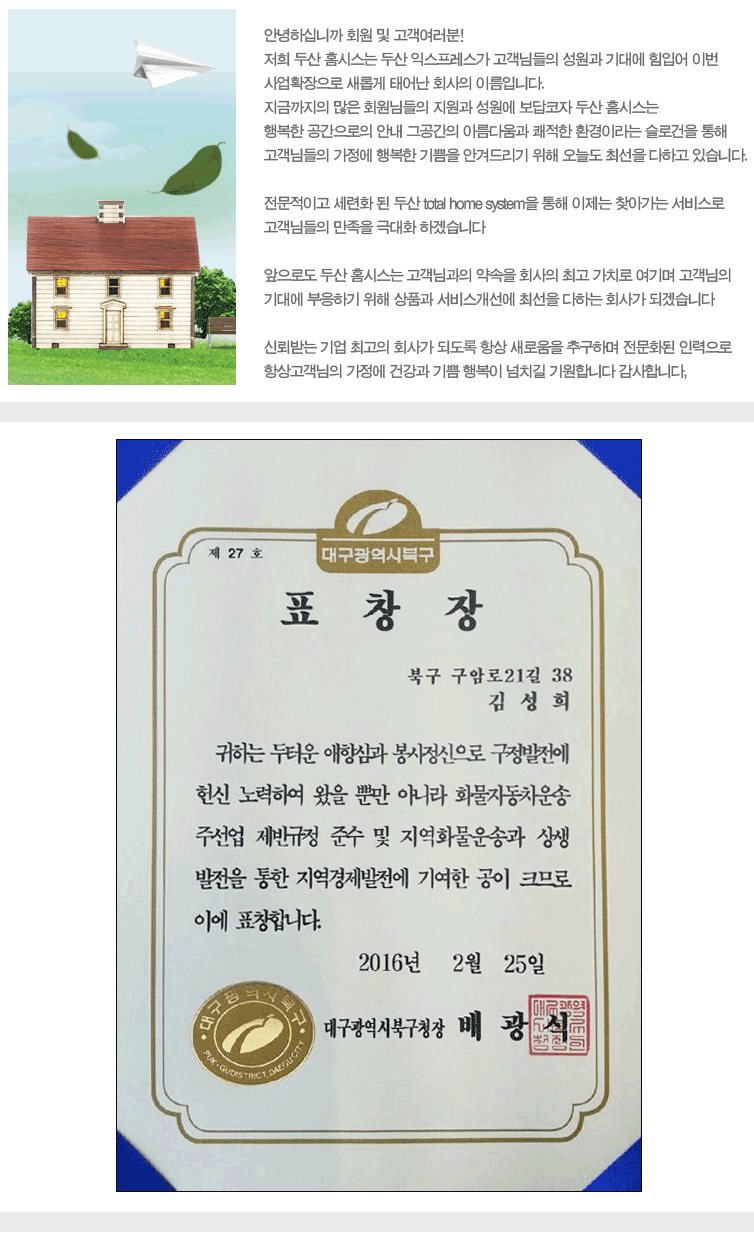 안녕하십니까 회원 및 고객여러분!
저희 두산 홈시스는 두산 익스프레스가 고객님들의 성원과 기대에 힘입어 이번
사업확장으로 새롭게 태어난 회사의 이름입니다.
지금까지의 많은 회원님들의 지원과 성원에 보답코자 두산 홈시스는
행복한 공간으로의 안내 그공간의 아름다움과 쾌적한 환경이라는 슬로건을 통해
고객님들의 가정에 행복한 기쁨을 안겨드리기 위해 오늘도 최선을 다하고 있습니다.
전문적이고 세련화 된 두산 total home system을 통해 이제는 찾아가는 서비스로
고객님들의 만족을 극대화 하겠습니다
앞으로도 두산 홈시스는 고객님과의 약속을 회사의 최고 가치로 여기며 고객님의
기대에 부응하기 위해 상품과 서비스개선에 최선을 다하는 회사가 되겠습니다
신뢰받는 기업 최고의 회사가 되도록 항상 새로움을 추구하며 전문화된 인력으로
항상고객님의 가정에 건강과 기쁨 행복이 넘치길 기원합니다 감사합니다,
제 27 호
대구광역시북구
표 창 장
북구 구암로21길 38
김 성 희
귀하는 두터운 애향심과 봉사정신으로 구정발전에
헌신 노력하여 왔을 뿐만 아니라 화물자동차운송
주선업 제반규정 준수 및 지역화물운송과 상생
발전을 통한 지역경제발전에 기여한 공이 크므로
이에 표창합니다.
2016년 2월 25일
대구광역시북구
PUK-GU DISTRICT, DAEGU CITY
대구광역시북구청장 배 광 식